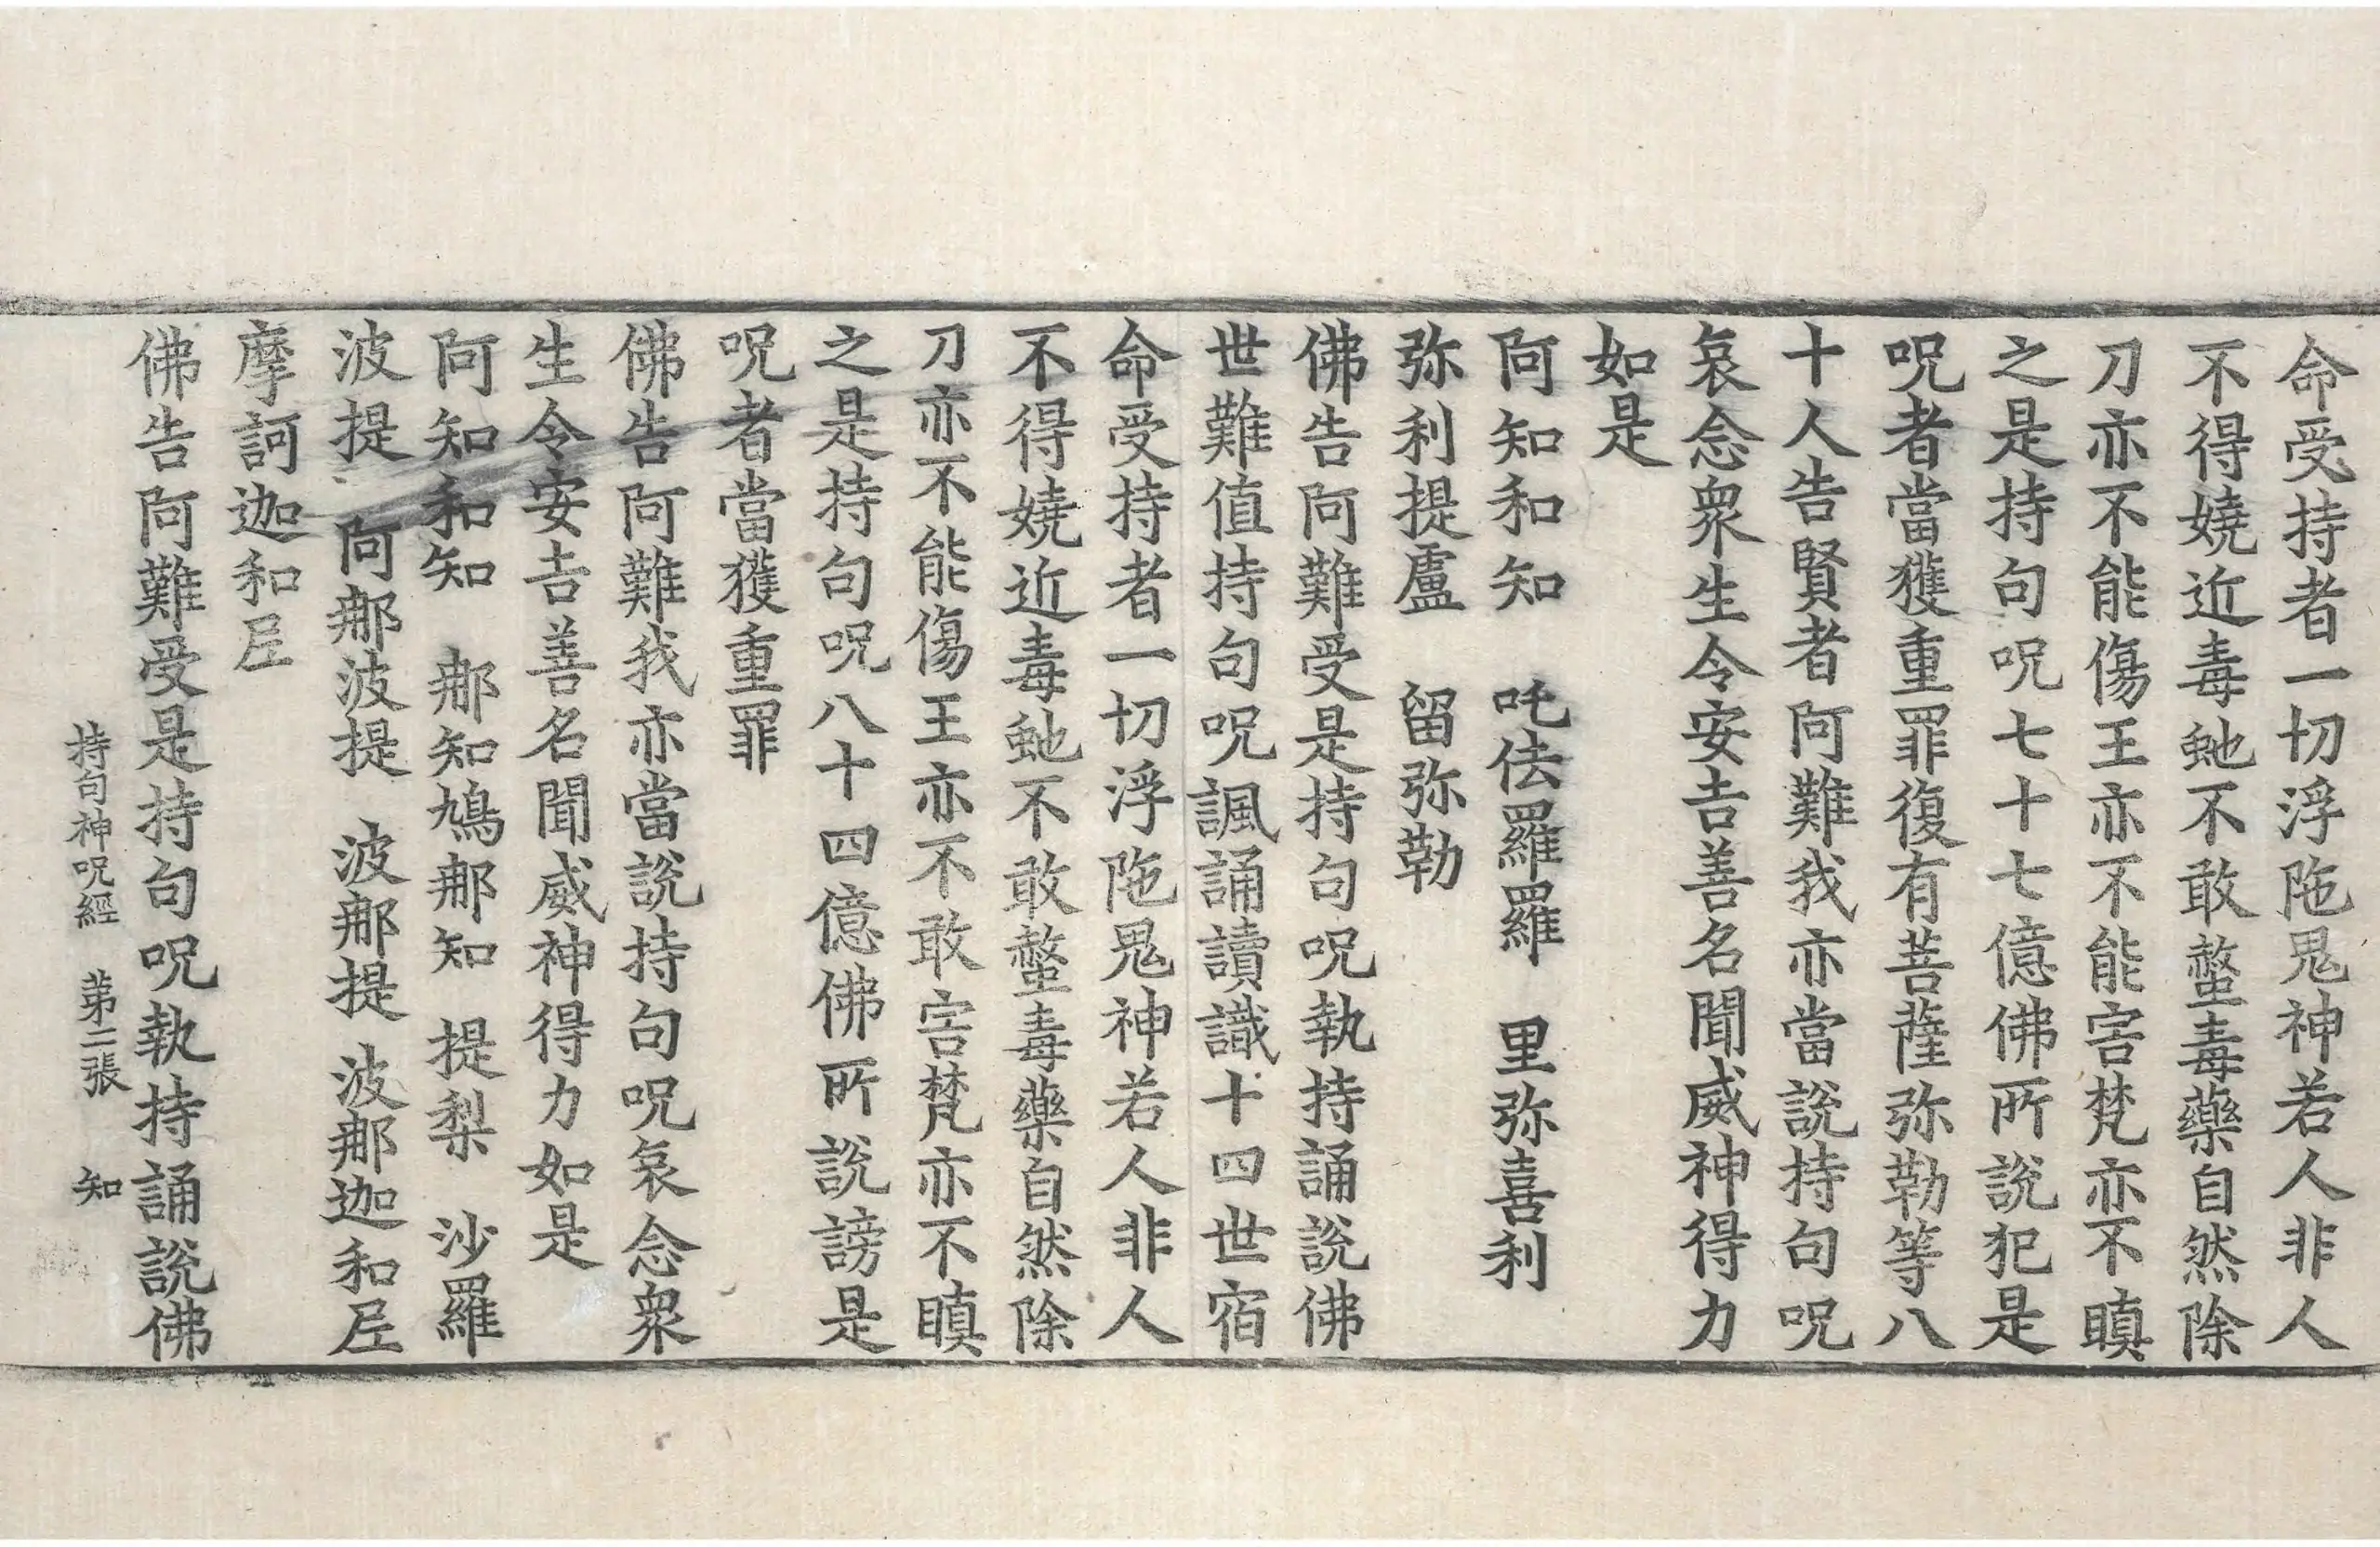 命受持者一切浮陁鬼神若人非人
不得嬈近毒虵不敢螫毒藥自然除
刀亦不能傷王亦不能害梵亦不瞋
之是持句呪七十七億佛所說犯是
呪者當獲重罪復有菩薩弥勒等八
十人告賢者阿難我亦當說持句呪
哀念衆生令安吉善名聞威神得力
如是
阿知和知　吒佉羅羅　里弥喜利
弥利提盧　留弥勒
佛告阿難受是持句呪執持誦說佛
世難值持句呪諷誦讀識十四世宿
命受持者一切浮陁鬼神若人非人
不得嬈近毒虵不敢螫毒藥自然除
刀亦不能傷王亦不敢害梵亦不瞋
之是持句呪八十四億佛所說謗是
呪者當獲重罪
佛告阿難我亦當說持句呪哀念衆
生令安吉善名聞威神得力如是
阿知和知　那知鳩那知　提梨　沙羅
波提　阿那波提　波那提　波那迦和尼
摩訶迦和尼
佛告阿難受是持句呪執持誦說佛
持句神呪經　第二張　知